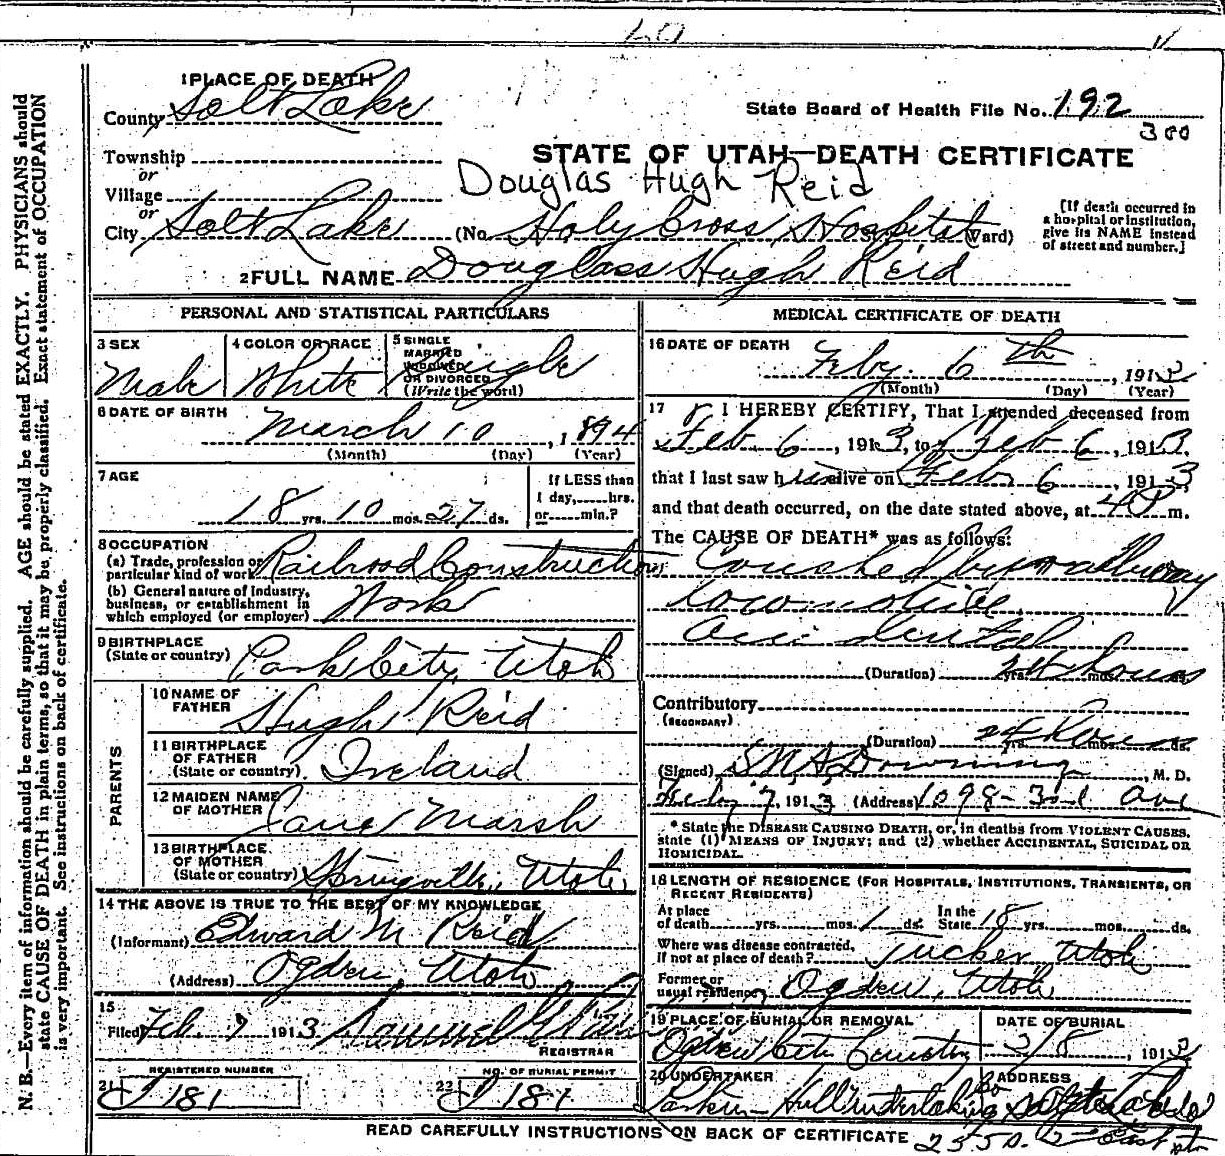 1 PLACE OF DEATH
County Salt Lake
State Board of Health File No. 192
300
Township
or
Village
or
STATE OF UTAH—DEATH CERTIFICATE
Douglas Hugh Reid
City Salt Lake (No. Holy Cross Hospital Ward)
[If death occurred in
a hospital or institution,
give its NAME instead
of street and number.]
2 FULL NAME Douglass Hugh Reid
PERSONAL AND STATISTICAL PARTICULARS
3 SEX
Male
4 COLOR OR RACE
White
5 SINGLE
MARRIED
WIDOWED
OR DIVORCED
(Write the word)
Single
6 DATE OF BIRTH
March 10, 1894
(Month) (Day) (Year)
7 AGE
18 yrs. 10 mos. 27 ds.
If LESS than
1 day, hrs.
or min.?
8 OCCUPATION
(a) Trade, profession or
particular kind of work Railroad Construction
(b) General nature of industry,
business, or establishment in
which employed (or employer) Work
9 BIRTHPLACE
(State or country) Park City, Utah
PARENTS
10 NAME OF
FATHER Hugh Reid
11 BIRTHPLACE
OF FATHER
(State or country) Ireland
12 MAIDEN NAME
OF MOTHER Jane Marsh
13 BIRTHPLACE
OF MOTHER
(State or country) Springville, Utah
14 THE ABOVE IS TRUE TO THE BEST OF MY KNOWLEDGE
(Informant) Edward M Reid
(Address) Ogden, Utah
15
Filed Feb. 7 1913 Samuel G
REGISTRAR
21 REGISTERED NUMBER
J 181
22 NO. OF BURIAL PERMIT
J 181
MEDICAL CERTIFICATE OF DEATH
16 DATE OF DEATH
Feby 6th, 1913
(Month) (Day) (Year)
17 I HEREBY CERTIFY, That I attended deceased from
Feb 6, 1913, to Feb 6, 1913,
that I last saw him alive on Feb 6, 1913,
and that death occurred, on the date stated above, at 4 P m.
The CAUSE OF DEATH* was as follows:
Crushed by railway
locomotive
accidental
(Duration) 24 hours yrs. mos. ds.
Contributory
(SECONDARY)
(Duration) 24 hours yrs. mos. ds.
(Signed) Downing, M. D.
Feby 7, 1913 (Address) 1098-3rd Ave
* State the DISEASE CAUSING DEATH, or, in deaths from VIOLENT CAUSES,
state (1) MEANS OF INJURY; and (2) whether ACCIDENTAL, SUICIDAL OR
HOMICIDAL.
18 LENGTH OF RESIDENCE (FOR HOSPITALS, INSTITUTIONS, TRANSIENTS, OR
RECENT RESIDENTS)
At place
of death yrs. mos. 1 ds.
In the
State 18 yrs. mos. ds.
Where was disease contracted,
if not at place of death? Tucker Utah
Former or
usual residence Ogden, Utah
19 PLACE OF BURIAL OR REMOVAL
Ogden City Cemetery
DATE OF BURIAL
2/8, 1913
20 UNDERTAKER
Larkin-Hull undertaking Co
ADDRESS
Salt Lake
255 So. 2nd East str
READ CAREFULLY INSTRUCTIONS ON BACK OF CERTIFICATE
N. B.—Every item of information should be carefully supplied. AGE should be stated EXACTLY. PHYSICIANS should
state CAUSE OF DEATH in plain terms, so that it may be properly classified. Exact statement of OCCUPATION
is very important. See instructions on back of certificate.